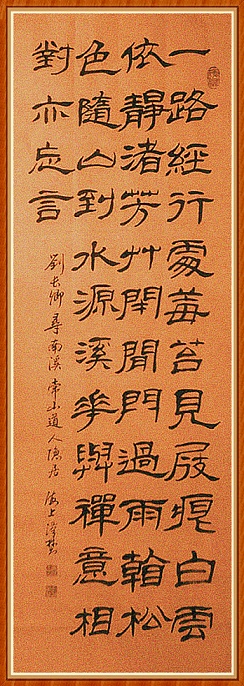 一路經行處莓苔見屐痕白雲
依靜渚芳艸閉閒門過雨看松
色隨山到水源溪花與禪意相
對亦忘言
劉長卿 尋南溪常山道人隱居 海上